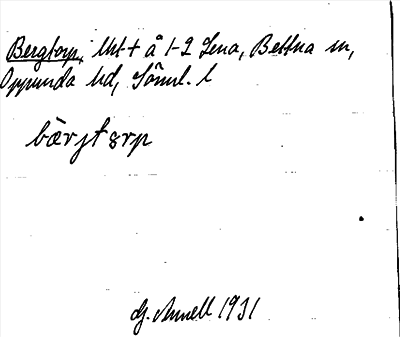 Bergtorp, lht + å 1-2 Lena, Bettna sn,
Oppunda hd, Söml. l
bærjtərp
G. Annell 1931